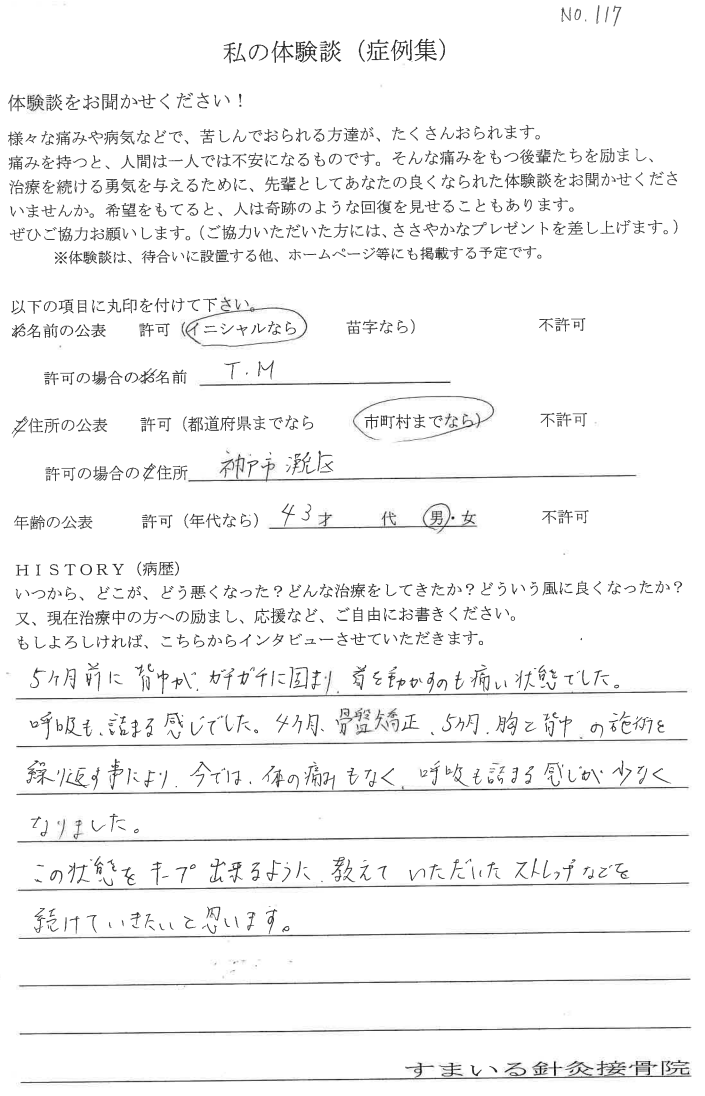 NO.117
私の体験談（症例集）
体験談をお聞かせください！
様々な痛みや病気などで、苦しんでおられる方達が、たくさんおられます。
痛みを持つと、人間は一人では不安になるものです。そんな痛みをもつ後輩たちを励まし、
治療を続ける勇気を与えるために、先輩としてあなたの良くなられた体験談をお聞かせくださ
いませんか。希望をもてると、人は奇跡のような回復を見せることもあります。
ぜひご協力お願いします。（ご協力いただいた方には、ささやかなプレゼントを差し上げます。）
※体験談は、待合いに設置する他、ホームページ等にも掲載する予定です。
以下の項目に丸印を付けて下さい。
お名前の公表 許可（イニシャルなら 苗字なら） 不許可
許可の場合のお名前 T.M
ご住所の公表 許可（都道府県までなら 市町村までなら） 不許可
許可の場合のご住所 神戸市灘区
年齢の公表 許可（年代なら） 43才 代 男・女 不許可
ＨＩＳＴＯＲＹ（病歴）
いつから、どこが、どう悪くなった？どんな治療をしてきたか？どういう風に良くなったか？
又、現在治療中の方への励まし、応援など、ご自由にお書きください。
もしよろしければ、こちらからインタビューさせていただきます。
5ヶ月前に背中が、ガチガチに固まり、首を動かすのも痛い状態でした。
呼吸も、詰まる感じでした。4ヶ月、骨盤矯正、5ヶ月、胸と背中、の施術を
繰り返す事により、今では、体の痛みもなく、呼吸も詰まる感じが少なく
なりました。
この状態をキープ出来るように、教えていただいたストレッチなどを
続けていきたいと思います。
すまいる針灸接骨院